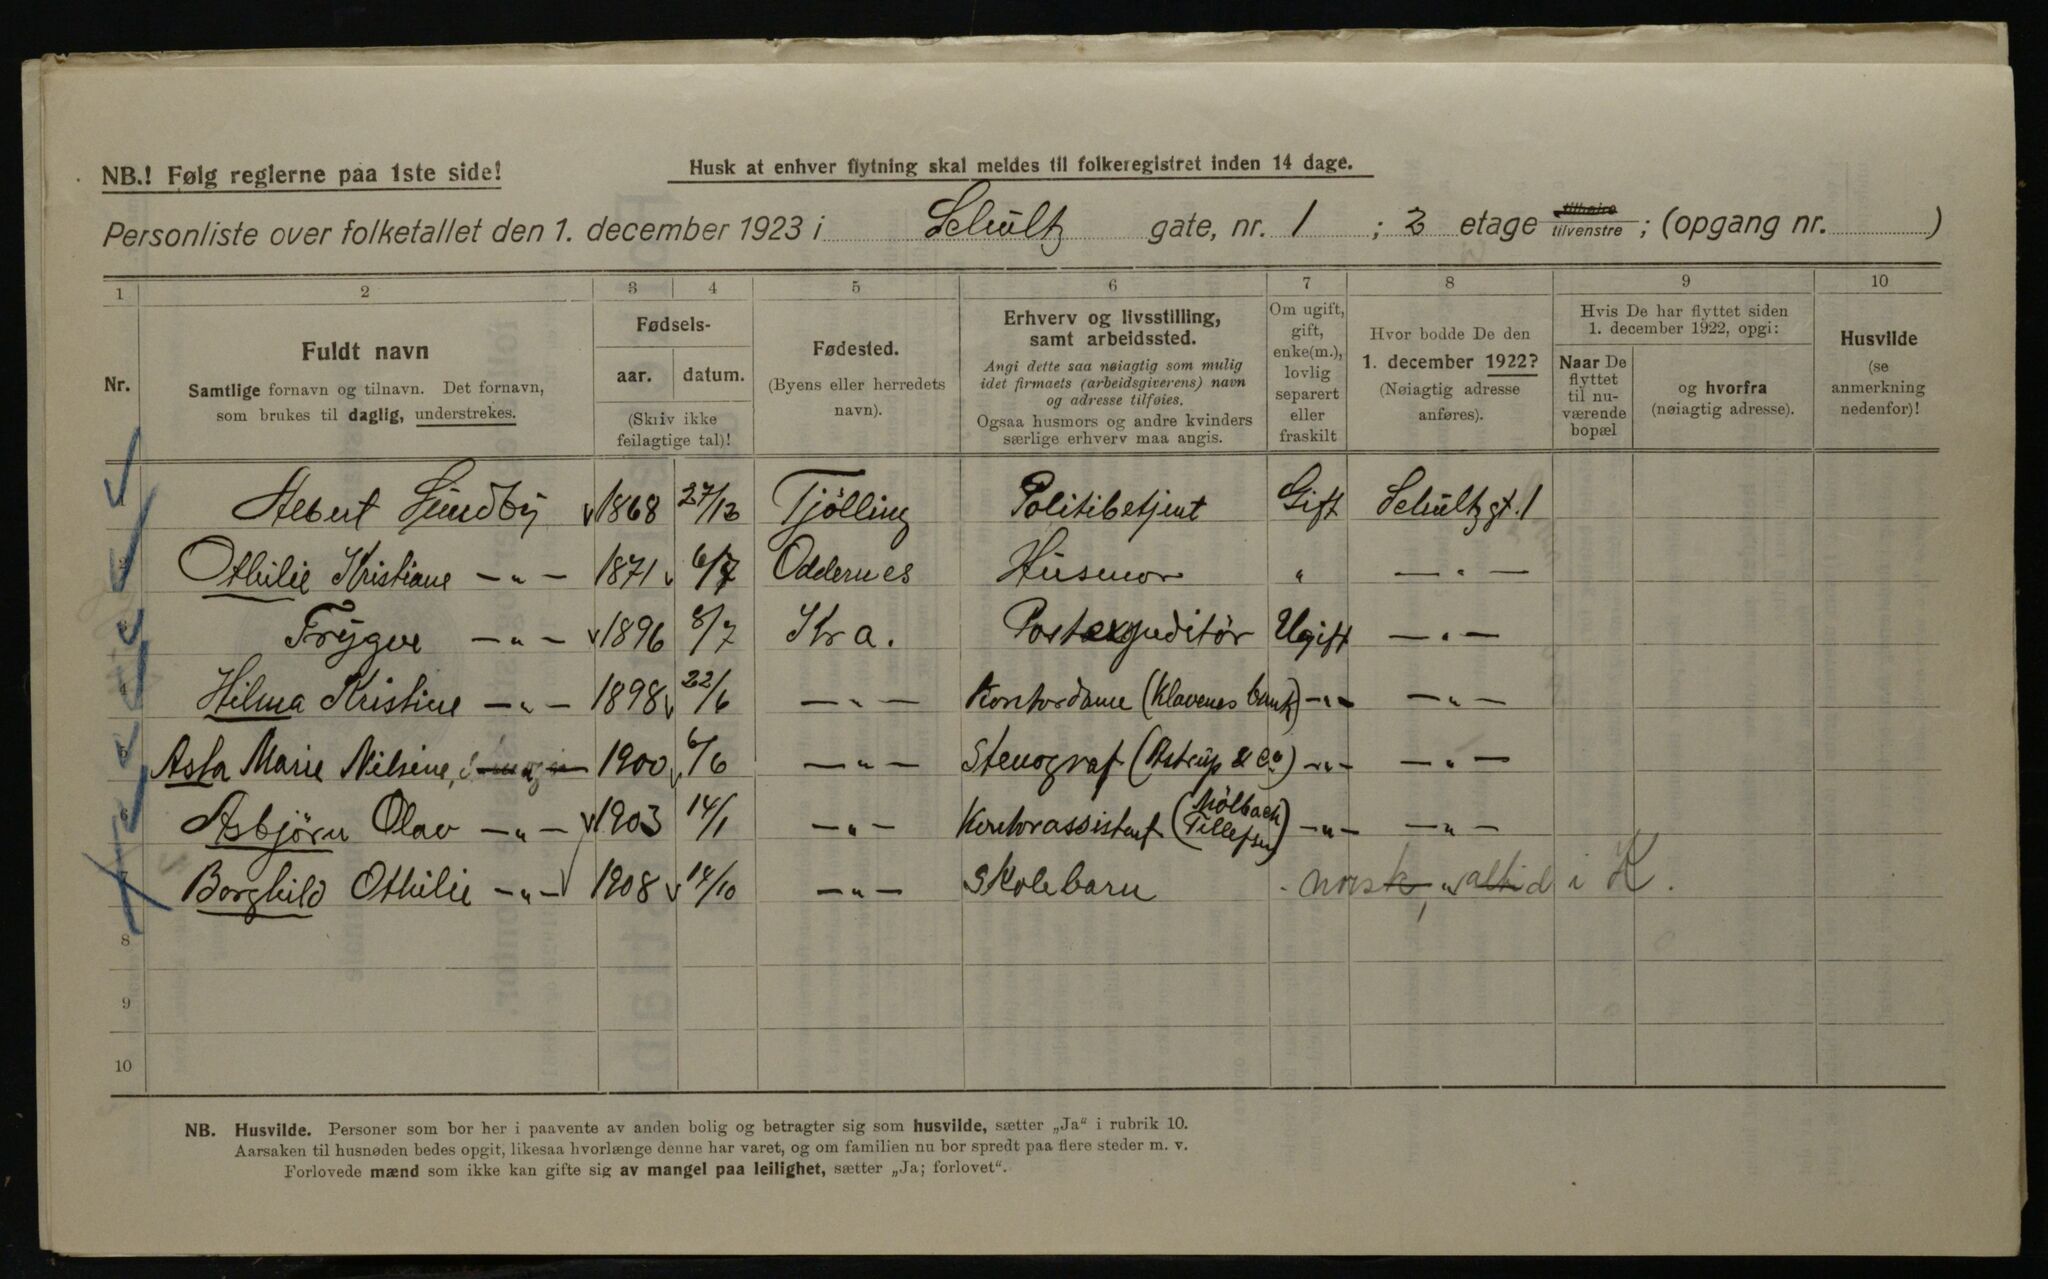 NB.! Følg reglerne paa 1ste side!
Husk at enhver flytning skal meldes til folkeregistret inden 14 dage.
Personliste over folketallet den 1. december 1923 i Schultz gate, nr. 1 ; 2 etage tilhøire tilvenstre ; (opgang nr. )
1 2 3 4 5 6 7 8 9 10
Nr.
Fuldt navn
Samtlige fornavn og tilnavn. Det fornavn,
som brukes til daglig, understrekes.
Fødsels-
aar. datum.
(Skriv ikke
feilagtige tal)!
Fødested.
(Byens eller herredets
navn).
Erhverv og livsstilling,
samt arbeidssted.
Angi dette saa nøiagtig som mulig
idet firmaets (arbeidsgiverens) navn
og adresse tilføies.
Ogsaa husmors og andre kvinders
særlige erhverv maa angis.
Om ugift,
gift,
enke(m.),
lovlig
separert
eller
fraskilt
Hvor bodde De den
1. december 1922?
(Nøiagtig adresse
anføres).
Hvis De har flyttet siden
1. december 1922, opgi:
Naar De
flyttet
til nu-
værende
bopæl
og hvorfra
(nøiagtig adresse).
Husvilde
(se
anmerkning
nedenfor)!
1 Albert Sundby 1868 27/12 Tjølling Politibetjent Gift Schultzgt. 1
2 Othilie Kristiane — „ — 1871 6/7 Oddernes Husmor „ — „ —
3 Trygve — „ — 1896 8/7 Kra. Postexpeditør Ugift — „ —
4 Hilma Kristine — „ — 1898 22/6 — „ — Kontordame (Klavenes bank) — „ — — „ —
5 Asta Marie Nilsine, — „ — 1900 6/6 — „ — Stenograf (Astrup & Co) — „ — — „ —
6 Asbjørn Olav — „ — 1903 14/1 — „ — Kontorassistent (Mölbach Tillefsen) — „ — — „ —
7 Borghild Othilie — „ — 1908 14/10 — „ — Skolebarn norsk, altid i K.
8
9
10
NB. Husvilde. Personer som bor her i paavente av anden bolig og betragter sig som husvilde, sætter „Ja“ i rubrik 10.
Aarsaken til husnøden bedes opgit, likesaa hvorlænge denne har varet, og om familien nu bor spredt paa flere steder m. v.
Forlovede mænd som ikke kan gifte sig av mangel paa leilighet, sætter „Ja; forlovet“.